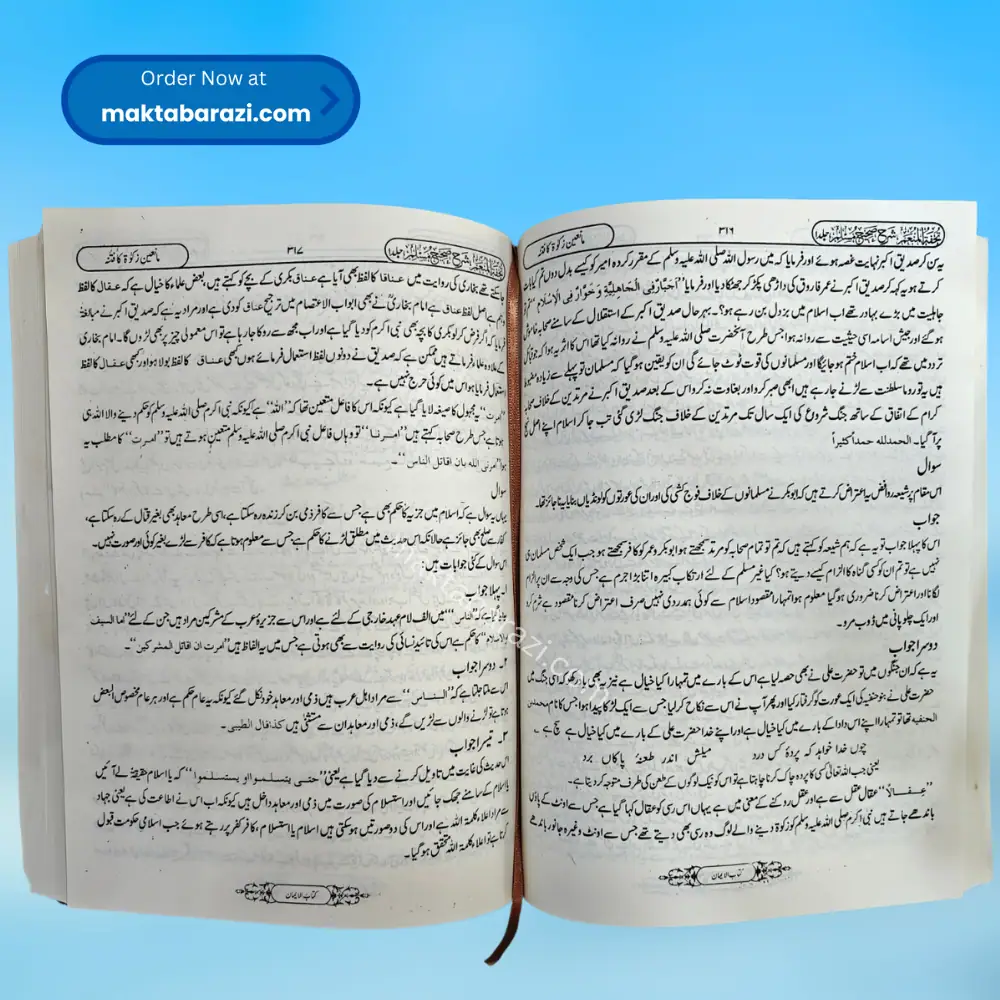 Order Now at
maktabarazi.com
تحفۃ المنعم شرح صحیح مسلم جلد ۱
۳۱۶
مانعین زکوٰۃ کا فتنہ
یہ سن کر صدیق اکبر نہایت غصہ ہوئے اور فرمایا کہ میں رسول اللہ صلی اللہ علیہ وسلم کے مقرر کردہ امیر کو کیسے بدل دوں تم کیا بات
کرتے ہو یہ کہہ کر صدیق اکبر نے عمر فاروق کی داڑھی پکڑ کر جھٹکا دیا اور فرمایا "أجبار فی الجاھلیۃ وخوار فی الاسلام"
جاہلیت میں بڑے بہادر تھے اب اسلام میں بزدل بن رہے ہو؟۔ بہر حال صدیق اکبر کے استقلال کے سامنے صحابہ خاموش
ہو گئے اور جیش اسامہ اسی حیثیت سے روانہ ہوا جس طرح آنحضرت صلی اللہ علیہ وسلم نے روانہ کیا تھا اس کا اثر یہ ہوا کہ جو
تردد میں تھے کہ اب اسلام ختم ہو جائیگا اور مسلمانوں کی قوت ٹوٹ جائے گی ان کو یقین ہو گیا کہ مسلمان تو پہلے سے زیادہ مضبوط
ہیں یہ تو روما سلطنت سے لڑنے جا رہے ہیں ابھی صبر کرو اور بغاوت نہ کرو اس کے بعد صدیق اکبر نے مرتدین کے خلاف صحابہ
کرام کے اتفاق کے ساتھ جنگ شروع کی ایک سال تک مرتدین کے خلاف جنگ لڑی گئی تب جا کر اسلام اپنے اصل نہج
پر آگیا۔ الحمدللہ حمدا کثیرا
سوال
اس مقام پر شیعہ روافض یہ اعتراض کرتے ہیں کہ ابوبکر نے مسلمانوں کے خلاف فوج کشی کی اور ان کی عورتوں کو لونڈیاں بنایا یہ ناجائز تھا۔
جواب
اس کا پہلا جواب تو یہ ہے کہ ہم شیعہ کو کہتے ہیں کہ تم تو تمام صحابہ کو مرتد سمجھتے ہو ابوبکر و عمر کو کافر سمجھتے ہو جب ایک شخص مسلمان ہی
نہیں ہے تو تم ان کو کسی گناہ کا الزام کیسے دیتے ہو؟ کیا غیر مسلم کے لئے ارتکاب کبیرہ اتنا بڑا جرم ہے جس کی وجہ سے ان پر الزام
لگانا اور اعتراض کرنا ضروری ہو گیا معلوم ہوا تمہارا مقصود اسلام سے کوئی ہمدردی نہیں صرف اعتراض کرنا مقصود ہے شرم کرو
اور ایک چلو پانی میں ڈوب مرو۔
دوسرا جواب
یہ ہے کہ ان جنگوں میں تو حضرت علی نے بھی حصہ لیا ہے اس کے بارے میں تمہارا کیا خیال ہے نیز یہ بھی یاد رکھو کہ اسی جنگ میں
حضرت علی نے بنو حنیفہ کی ایک عورت کو گرفتار کیا اور پھر آپ نے اس سے نکاح کر لیا جس سے ایک لڑکا پیدا ہوا جس کا نام محمد بن
الحنفیہ تھا تو تمہارا اپنے اس دادا کے بارے میں کیا خیال ہے اور اپنے خدا حضرت علی کے بارے میں کیا خیال ہے سچ ہے ۔
چوں خدا خواہد کہ پردۂ کس درد    میلش اندر طعنۂ پاکاں برد
یعنی جب اللہ تعالیٰ کسی کا پردہ چاک کرنا چاہتا ہے تو اس کو نیک لوگوں کے طعن کی طرف متوجہ کر دیتا ہے۔
"عقالا" عقال عقل سے ہے اور عقل روکنے کے معنی میں ہے یہاں اس رسی کو عقال کہا گیا ہے جس سے اونٹ کے پاؤں
باندھے جاتے ہیں نبی اکرم صلی اللہ علیہ وسلم کو زکوٰۃ دینے والے لوگ وہ رسی بھی دیتے تھے جس سے اونٹ وغیرہ جانور باندھے
کتاب الایمان
تحفۃ المنعم شرح صحیح مسلم جلد ۱
۳۱۷
مانعین زکوٰۃ کا فتنہ
جا سکتے تھے بخاری کی روایت میں عناقا کا لفظ بھی آیا ہے عناق بکری کے بچے کو کہتے ہیں بعض علماء کا خیال ہے کہ عقال کا لفظ
وہم ہے اصل لفظ عناق ہے امام بخاری نے بھی ابواب الاعتصام میں ترجیح عناق کو دی ہے اور مراد یہ ہے کہ صدیق اکبر نے مبالغۃ
فرمایا کہ اگر فرض کر لو بکری کا بچہ بھی نبی اکرم کو دیا گیا ہے اور اب مجھ سے روکا جا رہا ہے تو اس معمولی چیز پر بھی لڑوں گا۔ امام بخاری
کے علاوہ علماء فرماتے ہیں ممکن ہے کہ صدیق نے دونوں لفظ استعمال فرمائے ہوں کبھی عناق کا لفظ بولا ہو اور کبھی عقال کا لفظ
استعمال فرمایا ہو اس میں کوئی حرج نہیں ہے۔
"امرت" یہ مجہول کا صیغہ لایا گیا ہے کیونکہ اس کا فاعل متعین تھا کہ "اللہ" ہے کیونکہ نبی اکرم صلی اللہ علیہ وسلم کو حکم دینے والا اللہ ہی
ہوتا ہے جس طرح صحابہ کہتے ہیں "امرنا" تو وہاں فاعل نبی اکرم صلی اللہ علیہ وسلم متعین ہوتے ہیں تو "امرت" کا مطلب یہ
ہوا "امرنی اللہ بان اقاتل الناس"۔
سوال
یہاں یہ سوال ہے کہ اسلام میں جزیہ کا حکم بھی ہے جس سے کافر ذمی بن کر زندہ رہ سکتا ہے، اسی طرح معاہد بھی بغیر قتال کے رہ سکتا ہے،
کفار سے صلح بھی جائز ہے حالانکہ اس حدیث میں مطلق لڑنے کا حکم ہے جس سے معلوم ہوتا ہے کہ کافر سے لڑے بغیر کوئی اور صورت نہیں۔
اس سوال کے کئی جوابات ہیں:
۱۔ پہلا جواب
یہ دیا گیا ہے کہ "الناس" میں الف لام عہد خارجی کے لئے ہے اور اس سے جزیرۂ عرب کے مشرکین مراد ہیں جن کے لئے "اما السیف
واما الاسلام" کا حکم ہے اس کی تائید نسائی کی روایت سے بھی ہوتی ہے جس میں یہ الفاظ ہیں "امرت ان اقاتل المشرکین"۔
۲۔ دوسرا جواب
اس سے ملتا جلتا ہے کہ "الناس" سے مراد اہل عرب ہیں ذمی اور معاہد خود نکل گئے کیونکہ یہ عام حکم ہے اور ہر عام مخصوص البعض
ہوتا ہے تو لڑنے والوں سے لڑیں گے، ذمی اور معاہد ان سے مستثنیٰ ہیں کذا قال الطیبی۔
۳۔ تیسرا جواب
اس حدیث کی غایت میں تاویل کرنے سے دیا گیا ہے یعنی "حتی یسلموا او یستسلموا" کہ یا اسلام حقیقۃ لے آئیں
یا اسلام کے سامنے جھک جائیں اور استسلام کی صورت میں ذمی اور معاہد داخل ہیں کیونکہ اب اس نے اطاعت کی ہے یعنی جہاد
سے مراد اعلاء کلمۃ اللہ ہے اور اس کی دو صورتیں ہو سکتی ہیں اسلام یا استسلام، کافر کفر پر رہتے ہوئے جب اسلامی حکومت قبول
کرتا ہے تو اعلاء کلمۃ اللہ متحقق ہو گیا۔
کتاب الایمان